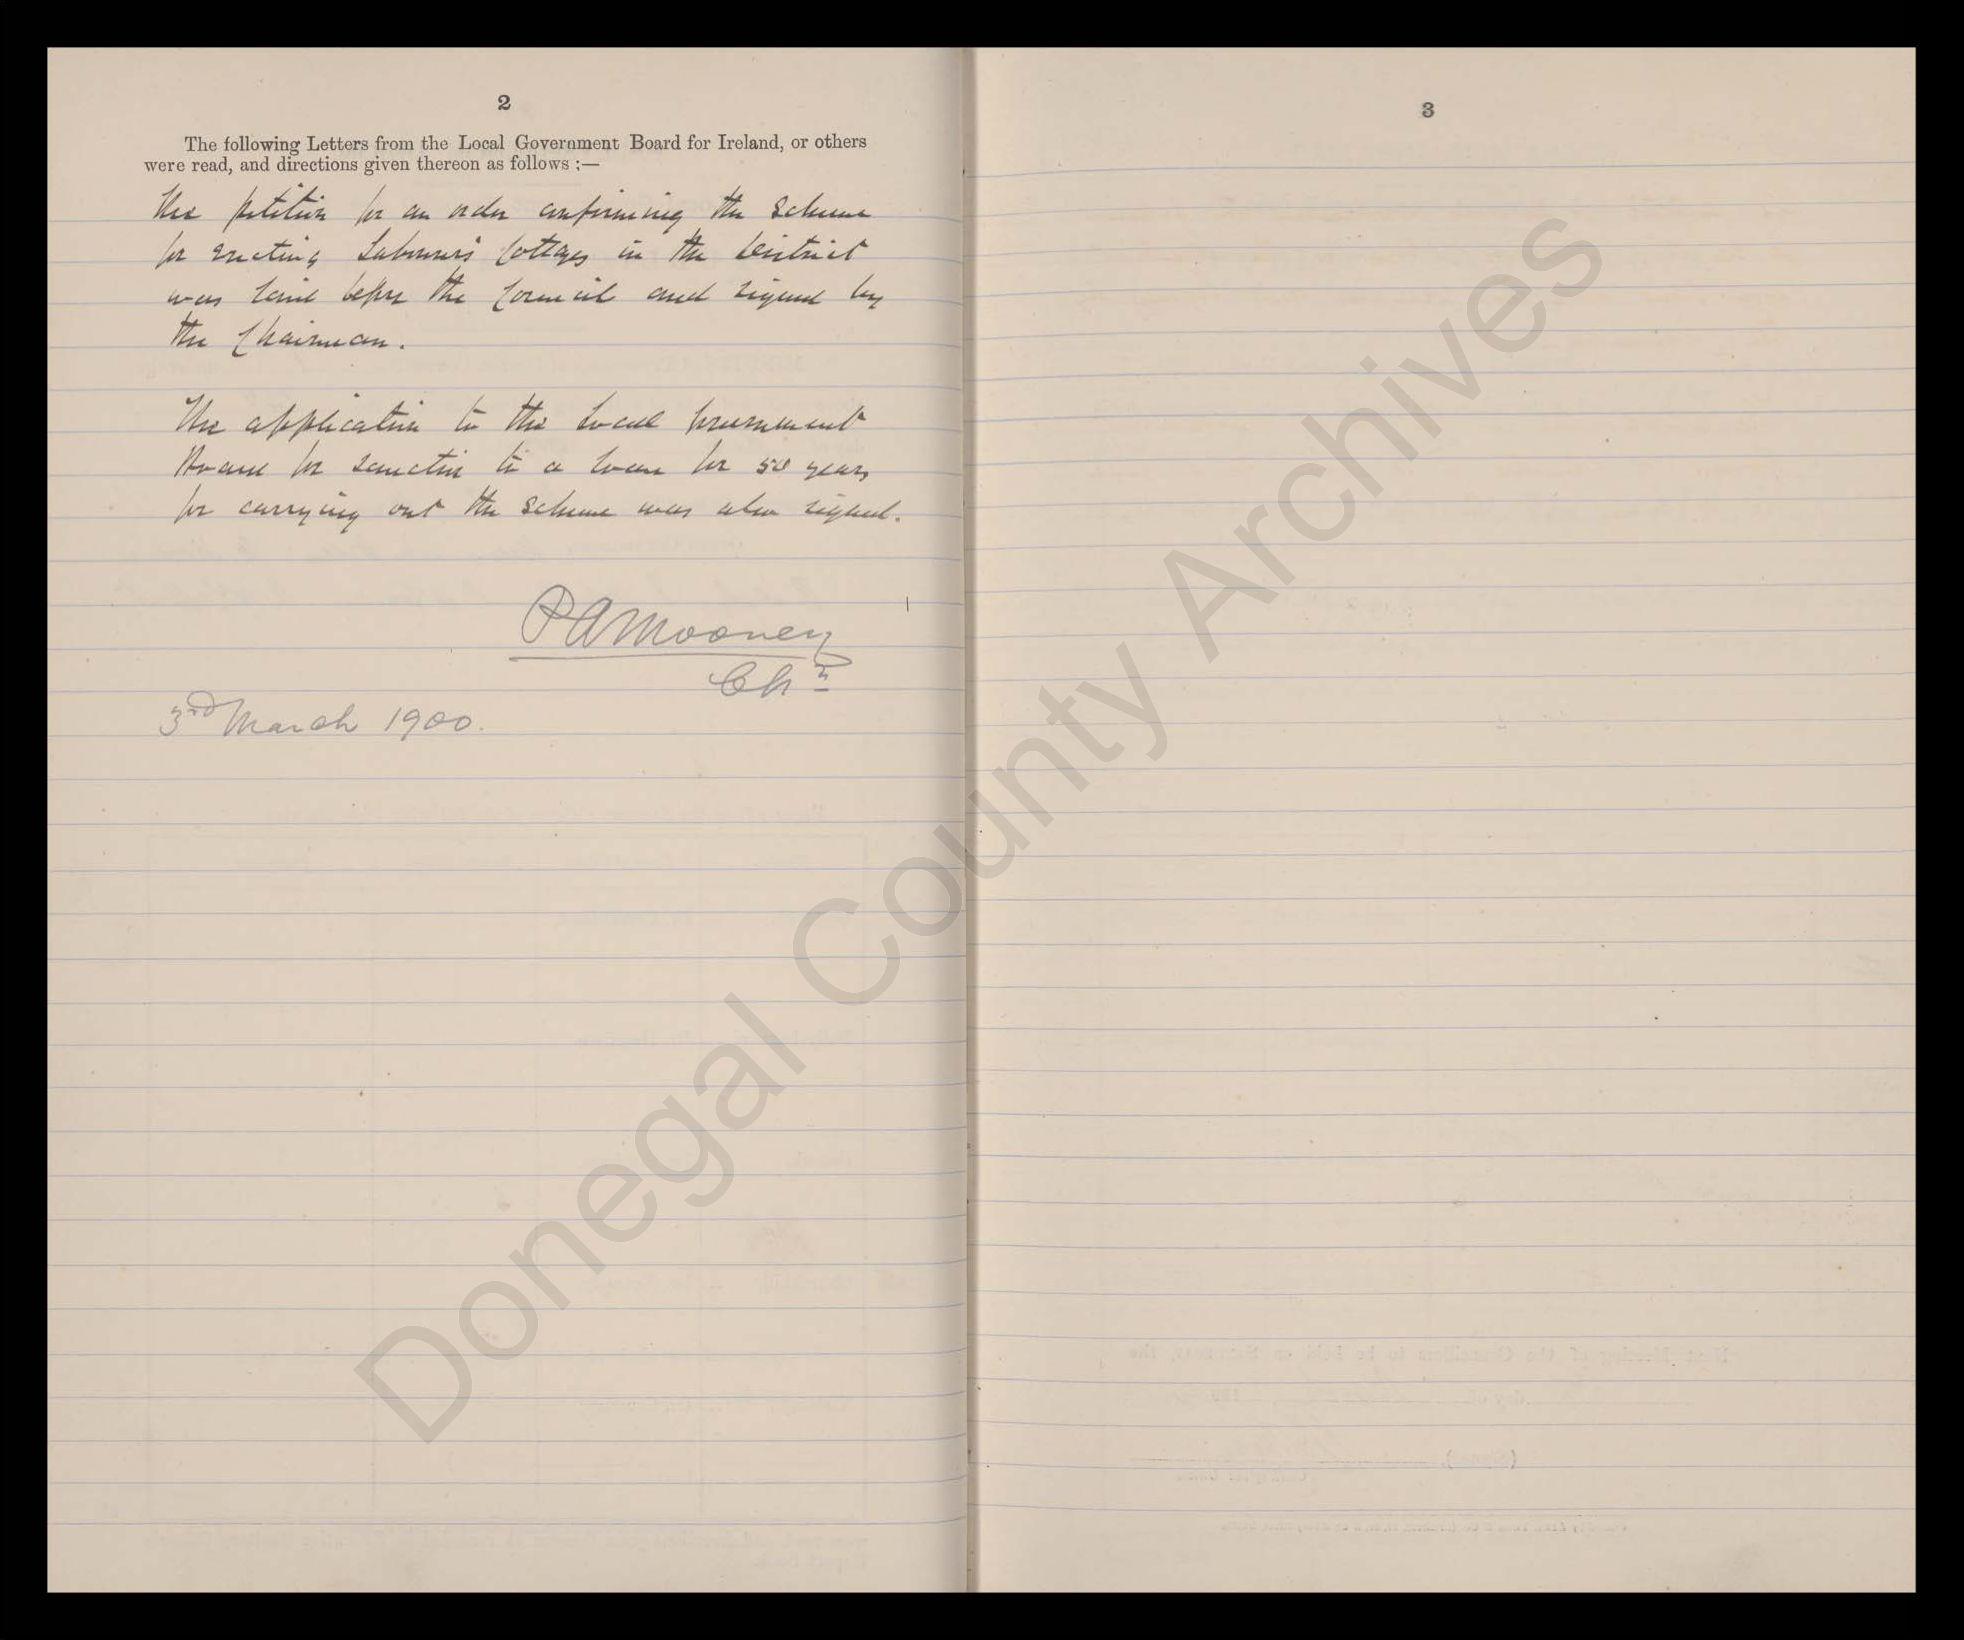 2
The following Letters from the Local Government Board for Ireland, or others
were read, and directions given thereon as follows :—
The petition for an order confirming the scheme
for erecting Labourers' Cottages in the District
was laid before the Council and signed by
the Chairman.
The application to the Local Government
Board for sanction to a loan for 50 years
for carrying out the scheme was also signed.
P A Mooney
Chn
3rd March 1900.
3
Donegal County Archives